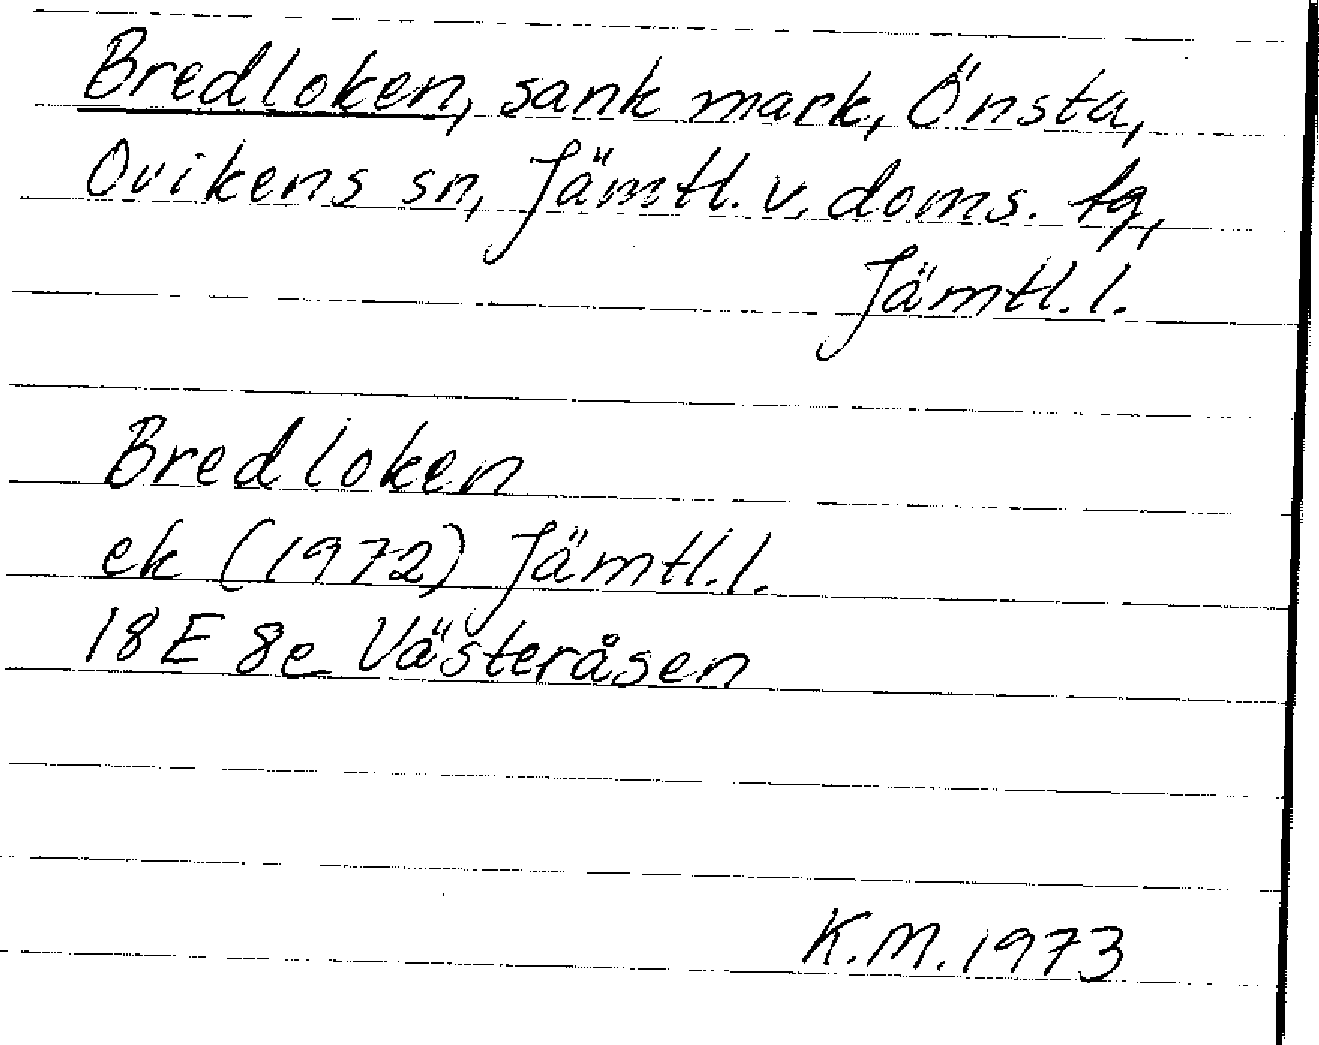 Bredloken, sank mark, Önsta,
Ovikens sn, Jämtl. v. doms. tg,
Jämtl. l.
Bredloken
ek (1972) Jämtl. l.
18E 8e Västeråsen
K.M. 1973